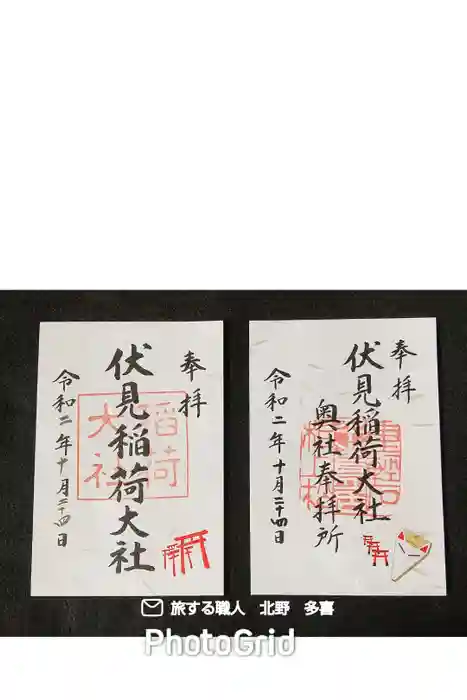 奉拝
伏見稲荷大社
令和二年十月二十四日
稲荷
大社
奉拝
伏見稲荷大社
奥社奉拝所
令和二年十月二十四日
旅する職人 北野 多喜
PhotoGrid